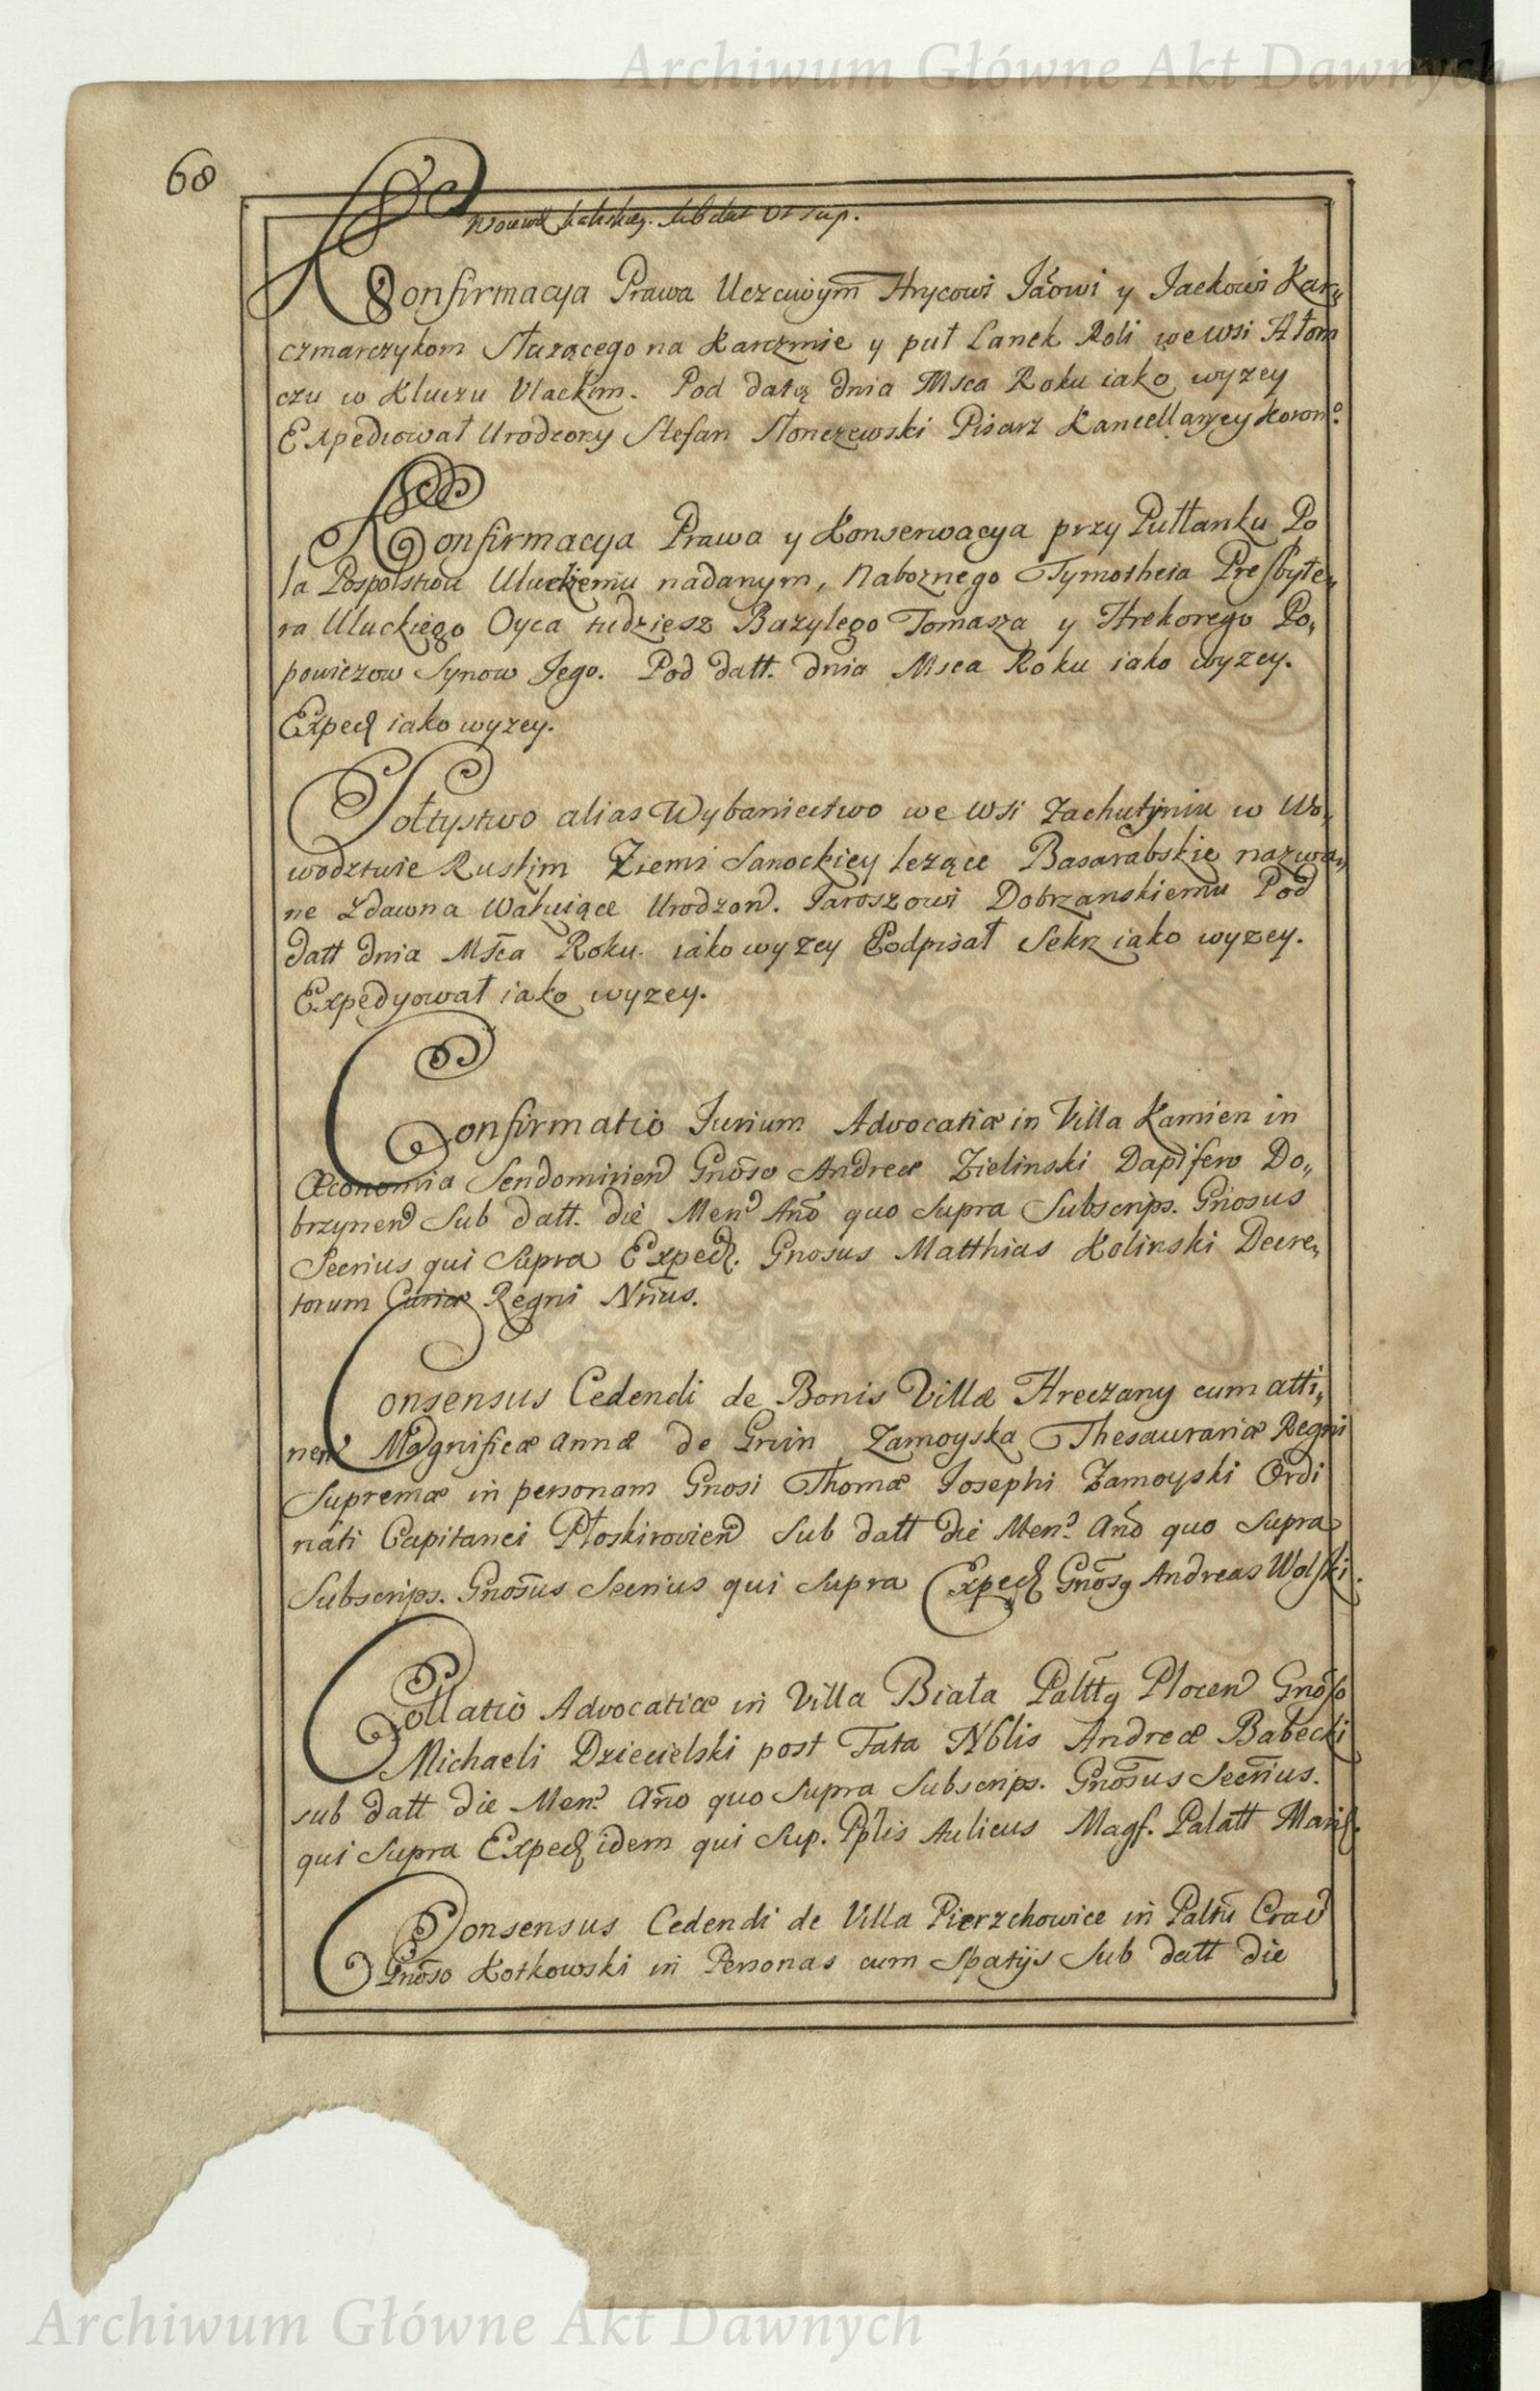 Archiwum Główne Akt Dawnych
68
sub dat ut sup.
Konfirmacya Prawa Uczciwym̄ Hrycowi Jáowi y Jackowi Kar„
czmarczykom słuzącego na Karczmie y puł Lanek Roli we wsi Hłom
czu w Kluczu Ulackim. Pod datą dnia Msca Roku iako wyzey
Expediował Urodzony Stefan Słonczewski Pisarz Kancellaryey Koron:
Konfirmacya Prawa y Konserwacya przy Pułłanku Po
la Pospolstwu Uluckiemu nadanym, Naboznego Tymotheia Presbyte„
ra Uluckiego Oyca tudziesz Bazylego Tomasza y Hrehorego Po„
powiczow Synow Jego. Pod datt. dnia Msca Roku iako wyzey.
Exped iako wyzey.
Sołtystwo alias Wybaniectwo we wsi Zachutyniu w Wo„
wodztwie Ruskim Ziemi Sanockiey lezące Basarabskie nazwa„
ne zdawna Wakuiące Urodzon. Jaroszowi Dobrzanskiemu Pod
datt dnia Msca Roku. iako wyzey Podpisał Sekr iako wyzey.
Expedyował iako wyzey.
Confirmatio Jurium Advocatiæ in Villa Kamien in
Œconomia Sendomirien Gnōso Andreæ Zielinski Dapifero Do„
brzynen Sub datt. die Men Anō quo supra Subscrips. Gnosus
Secrius qui supra Exped. Gnosus Matthias Kolinski Decre„
torum Curiæ Regni Nrīus.
Consensus Cedendi de Bonis Villæ Hreczany cum atti„
nen Magnificæ Annæ de Gnin Zamoyska Thesaurariæ Regni
Supremæ in personam Gnosi Thomæ Josephi Zamoyski Ordi
nati Capitanei Płoskirovien Sub datt die Men Anō quo supra
Subscrips. Gnōsus Secrius qui supra Exped Gnōsq Andreas Wolski.
Collatio Advocatiæ in Villa Biała Palttq Plocen Gnōso
Michaeli Dziecielski post Fata Nblis Andreæ Babecki
sub datt die Men Año quo supra Subscrips. Gnōsus Secrīus.
qui supra Exped idem qui sup. Pplis Aulicus Magf. Palatt
Consensus Cedendi de Villa Pierzchowice in Paltū Crac
Gnōso Kotkowski in Personas cum Spatijs Sub datt die
Archiwum Główne Akt Dawnych